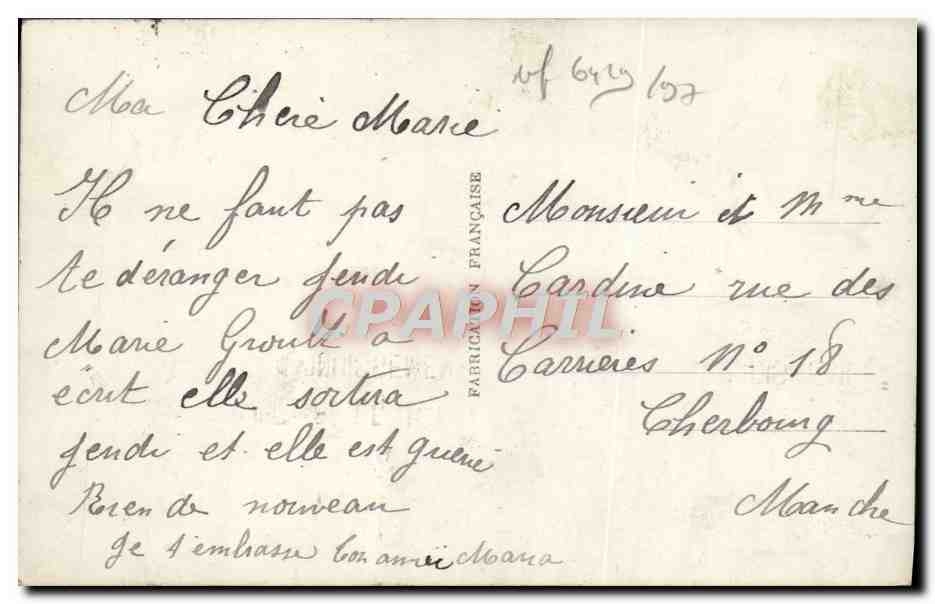 Ma Chere Marie
Il ne faut pas
te déranger jeudi
Marie Groult a
écrit elle sortira
jeudi et elle est guerie
Rien de nouveau
Je t'embrasse ton amie Maria
FABRICATION FRANÇAISE
Monsieur et Mme
Cardine rue des
Carrieres No 18
Cherbourg
Manche
CPAPHIL